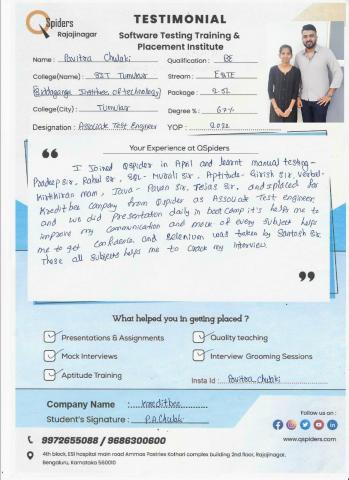 QSpiders
Rajajinagar
TESTIMONIAL
Software Testing Training &
Placement Institute
Name : Pavitra Chulaki
Qualification : BE
College(Name) : SIT Tumkur
Stream : E&TE
(Siddganga Institute of technology)
Package : 2.52
College(City) : Tumkur
Degree % : 67%
Designation : Associate Test Engineer
YOP : 2022
Your Experience at QSpiders
I Joined Qspider in April and learnt manual testing -
Pradeep sir, Rahul sir, SQL - Murali sir, Aptitude - Girish sir, verbal -
Kirthikiran mam, Java - Pavan sir, Tejas sir, and splaced for
Kreditbee company from Qspider as Associate Test engineer,
and we did presentation daily in boot camp it's helps me to
improve my communication and mock of every subject helps
me to get confidence and Selenium was taken by Santosh sir.
These all subjects helps me to crack my interview
What helped you in getting placed ?
Presentations & Assignments
Quality teaching
Mock Interviews
Interview Grooming Sessions
Aptitude Training
Insta Id : Pavitra_chulaki
Company Name : Kreditbee
Student's Signature : P.A.Chulaki
Follow us on :
9972655088 / 9686300600
www.qspiders.com
4th block, ESI hospital main road Ammas Pastries Kothari complex building 2nd floor, Rajajinagar,
Bengaluru, Karnataka 560010